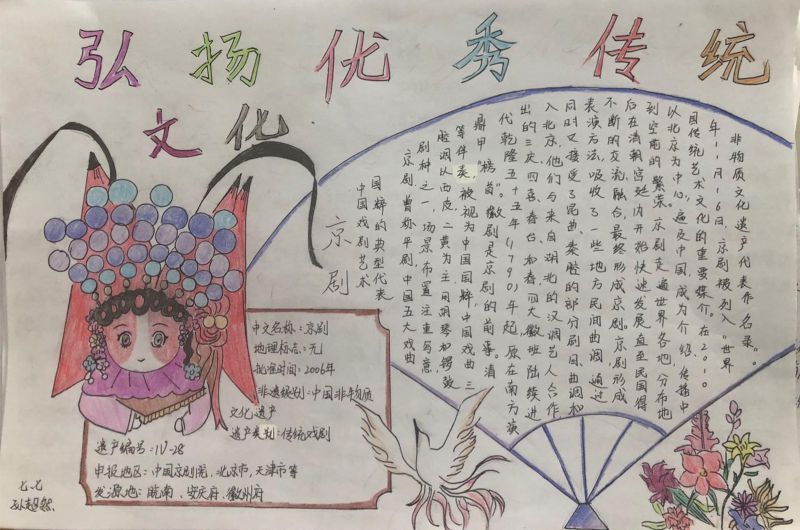 弘扬优秀传统
文化
京剧
中国戏剧艺术
国粹的典型代表
中文名称：京剧
地理标志：无
批准时间：2006年
非遗级别：中国非物质
文化遗产
遗产类别：传统戏剧
遗产编号：IV-28
申报地区：中国京剧院、北京市，天津市等
发源地：皖南、安庆府、徽州府
京剧，曾称平剧，中国五大戏曲
剧种之一，场景布置注重写意，
腔调以西皮、二黄为主，用胡琴和锣鼓
等伴奏，被视为中国国粹，中国戏曲三
鼎甲"榜首"。徽剧是京剧的前身。清
代乾隆五十五年(1790)年起，原在南方演
出的三庆、四喜、春台、和春，四大徽班陆续进
入北京，他们与来自湖北的汉调艺人合作，
同时又接受了昆曲、秦腔的部分剧目、曲调和
表演方法，吸收了一些地方民间曲调，通过
不断的交流、融合，最终形成京剧。京剧形成
后在清朝宫廷内开始快速发展，直至民国得
到空前的繁荣。京剧走遍世界各地，分布地
以北京为中心，遍及中国，成为介绍、传播中
国传统艺术文化的重要媒介。在2010
年11月16日，京剧被列入"世界
非物质文化遗产代表作名录"。
七、七